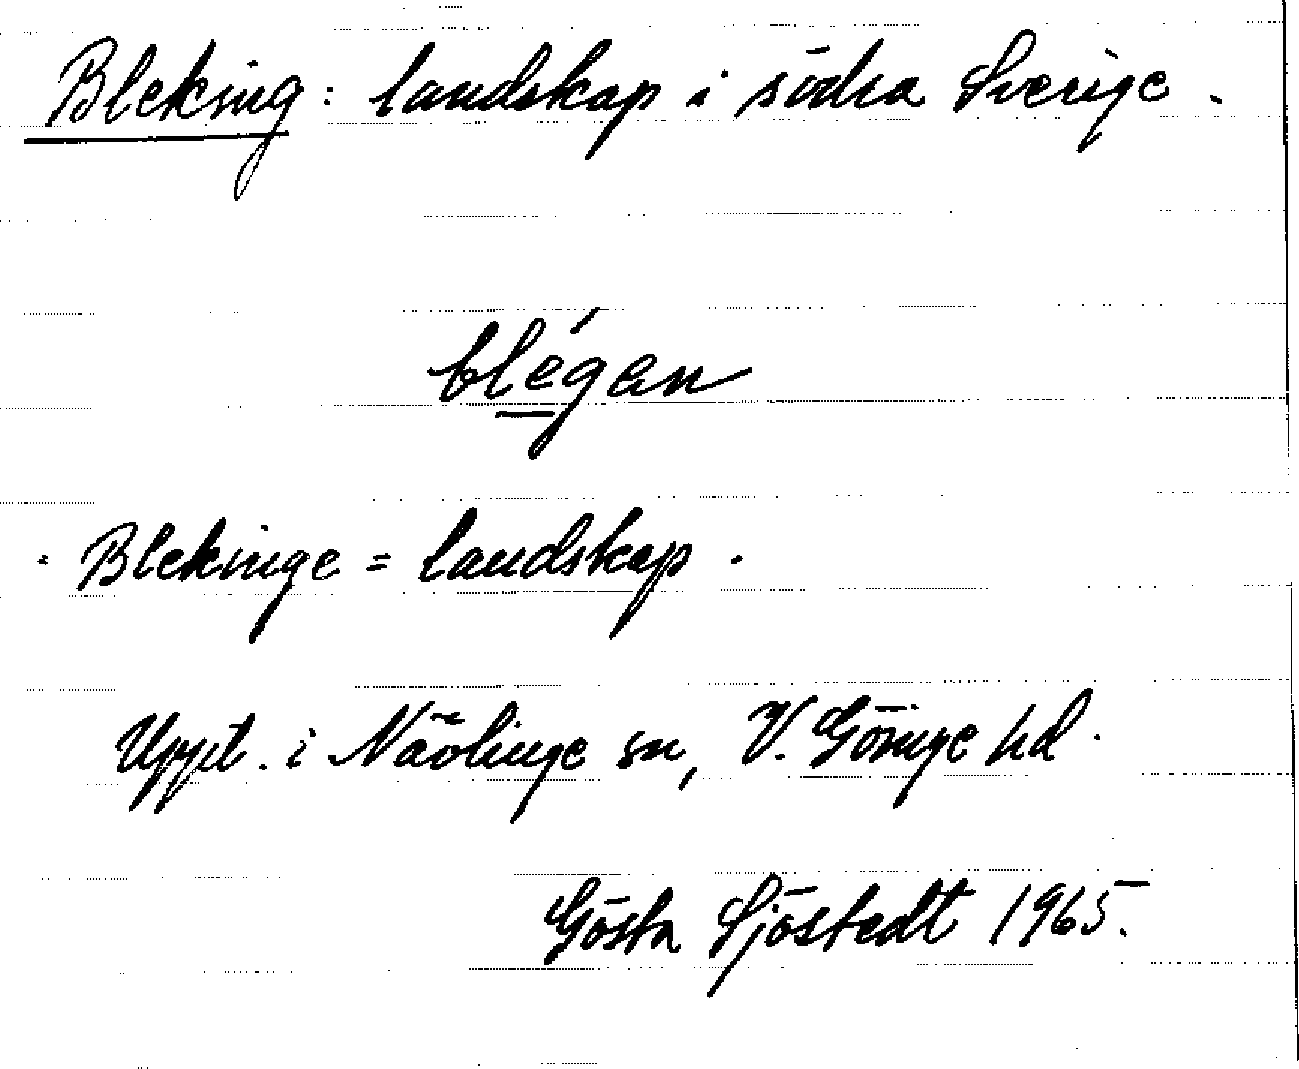 Bleking: landskap i södra Sverige.
blégen
= Blekinge = landskap.
Uppt. i Nävlinge sn, V. Göinge hd.
Gösta Sjöstedt 1965.